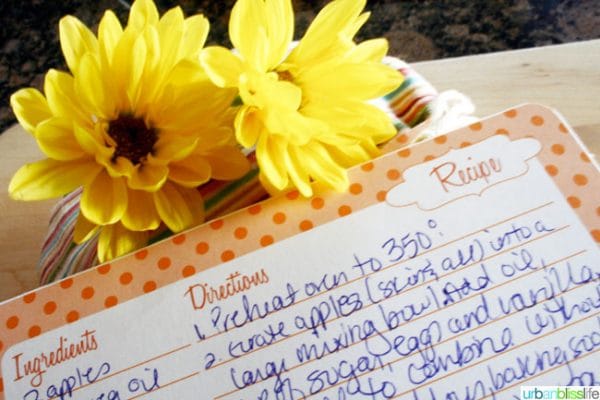 Recipe
Directions
1. Preheat oven to 350°.
2. Grate apples (skins, all) into a
large mixing bowl. Add oil,
sugar, eggs and vanilla.
to combine without
baking soda
Ingredients
2 apples
oil
urbanblisslife